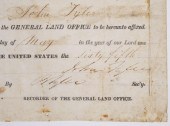 John Tyler
the GENERAL LAND OFFICE to be hereunto affixed.
day of May in the year of our Lord one
UNITED STATES the Sixty fifth
John Tyler
By Tyler Sec'y.
RECORDER OF THE GENERAL LAND OFFICE.